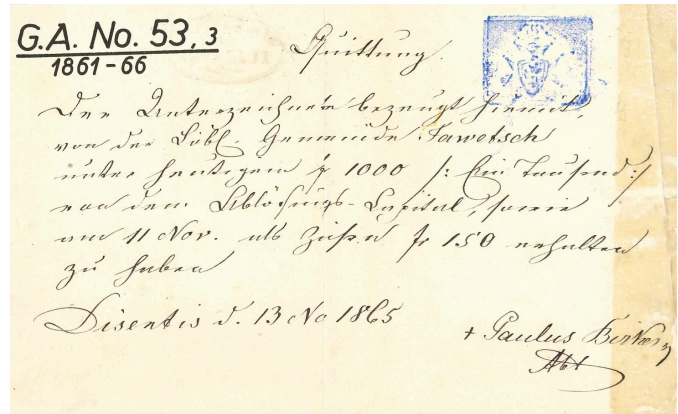 G.A. No. 53, 3
1861-66
Quittung.
Der Unterzeichnete bezeugt hiemit,
von der Löbl. Gemeinde Tawetsch
unter heutigem fr 1000 /: Ein Tausend :/
von dem Ablösungs-Capital, sowie
am 11 Nov. als Zinsen fr 150 erhalten
zu haben
Disentis d. 13 No 1865
+ Paulus
Abt